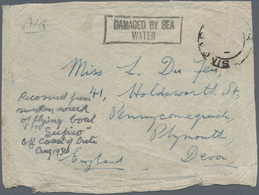 Air
DAMAGED BY SEA
WATER
Miss L. Du Feu,
41, Holdsworth St
Pennycomequick,
Plymouth
Devon
England
Recovered from
sunken wreck
of flying boat
"Scipio"
off coast of Crete
Aug 1936